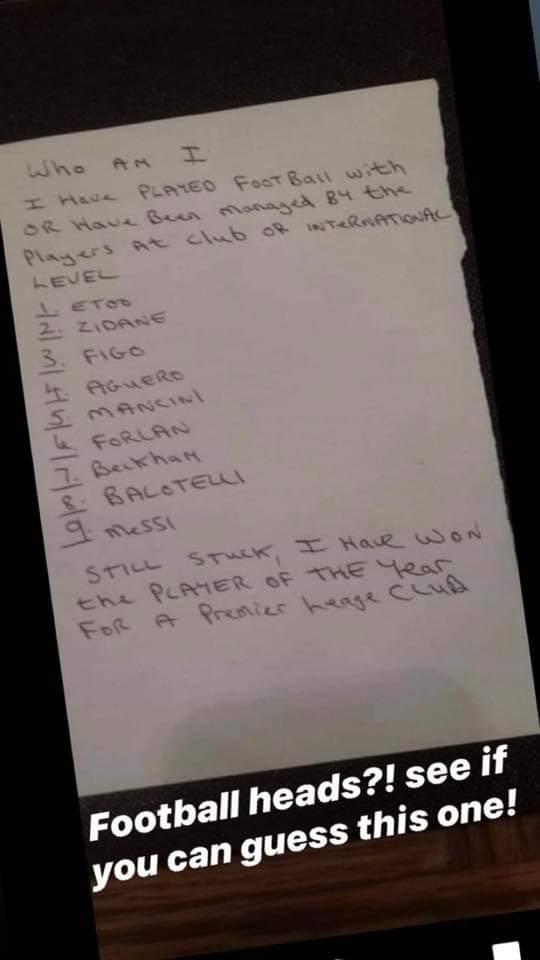 Who AM I
I Have PLAYED FOOTBall with
OR Have Been managed By the
Players At club OR INTERNATIONAL
LEVEL
1. ETOO
2. ZIDANE
3. FIGO
4. AGUERO
5 MANCINI
6 FORLAN
7. BeckhaM
8. BALOTELLI
9. messi
STILL STUCK, I Have WON
the PLAYER OF THE Year
FOR A Premier Leage CLUB
Football heads?! see if
you can guess this one!